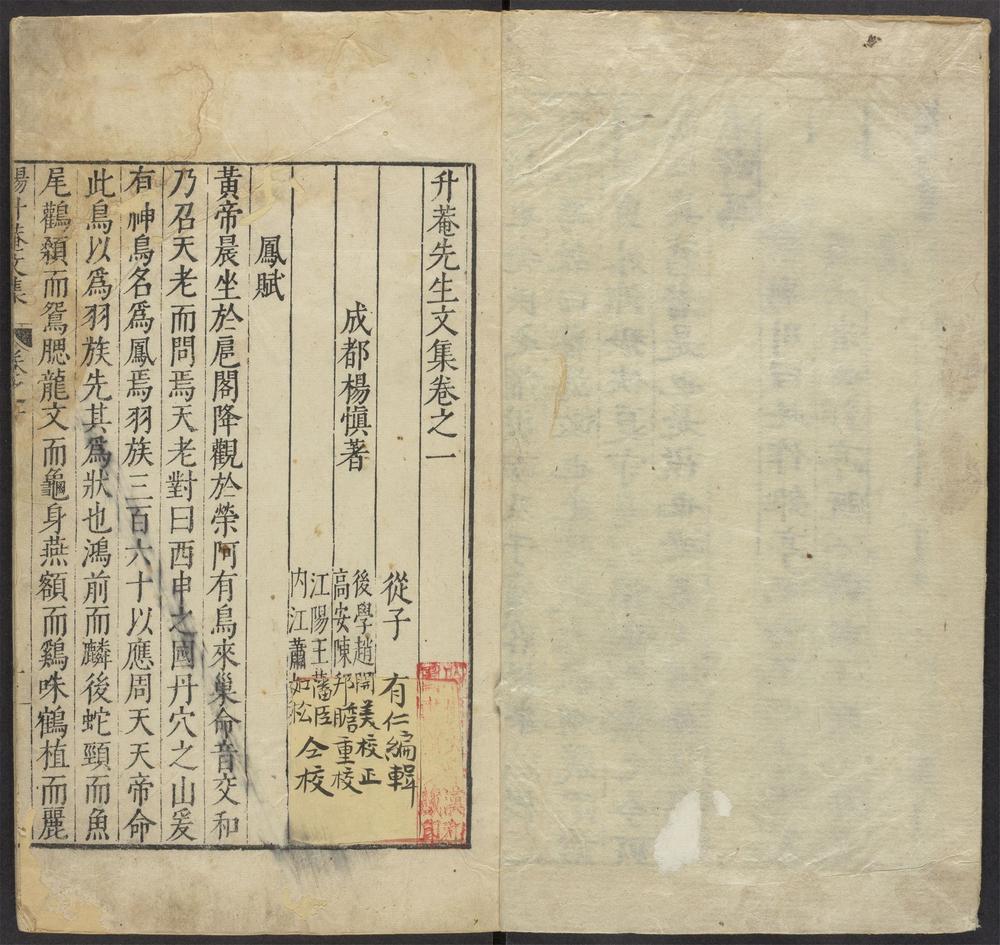 升菴先生文集卷之一
從子　有仁編輯
成都楊慎著
後學趙開美校正
高安陳邦瞻重校
江陽王藩臣
内江蕭如松
仝校
鳳賦
黃帝晨坐於扈閣降觀於榮阿有鳥來巢命音交和
乃召天老而問焉天老對曰西申之國丹穴之山爰
有神鳥名爲鳳焉羽族三百六十以應周天天帝命
此鳥以爲羽族先其爲狀也鴻前而麟後蛇頸而魚
尾鸛顙而鴛腮龍文而龜身燕額而鷄咮鶴植而麗
楊升菴文集